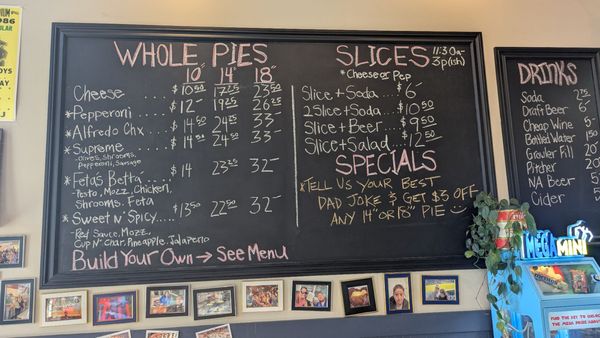 WHOLE PIES
10" 14" 18"
Cheese ..... $10.50 17.25 23.50
*Pepperoni .... $12- 19.25 26.25
*Alfredo Chx ... $14.50 24.50 33-
*Supreme ..... $14.50 24.50 33-
-Olives, Shrooms,
Pepperoni, Sausage
*Feta's Betta .. $14 23.25 32-
-Pesto, Mozz, Chicken,
Shrooms, Feta
*Sweet n' Spicy .... $13.50 22.50 32-
-Red Sauce, Mozz,
Cup n' Char, Pineapple, Jalapeño
Build Your Own → See Menu
SLICES 11:30a-
3p(ish)
*Cheese or Pep
Slice + Soda .... $6-
2 Slice + Soda ... $10.50
Slice + Beer .... $9.50
Slice + Salad .... $12.50
SPECIALS
*Tell Us Your Best
Dad Joke & Get $3 Off
Any 14" or 18" Pie
DRINKS
Soda
Draft Beer 6
Cheap Wine
Bottled Water
Growler Fill
Pitcher 20
NA Beer
Cider
MEGA MINI
FIND THE KEY TO UNLOCK
THE MEGA PRIZE